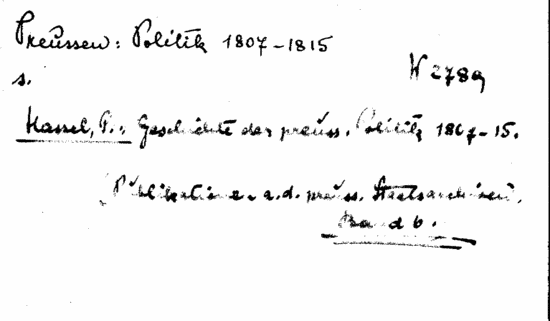 Preussen: Politik 1807-1815
W 2789
s.
Hassel, P.: Geschichte der preuss. Politik 1807-15.
(Publikationen a.d. preuss. Staatsarchiven.
Band 6.